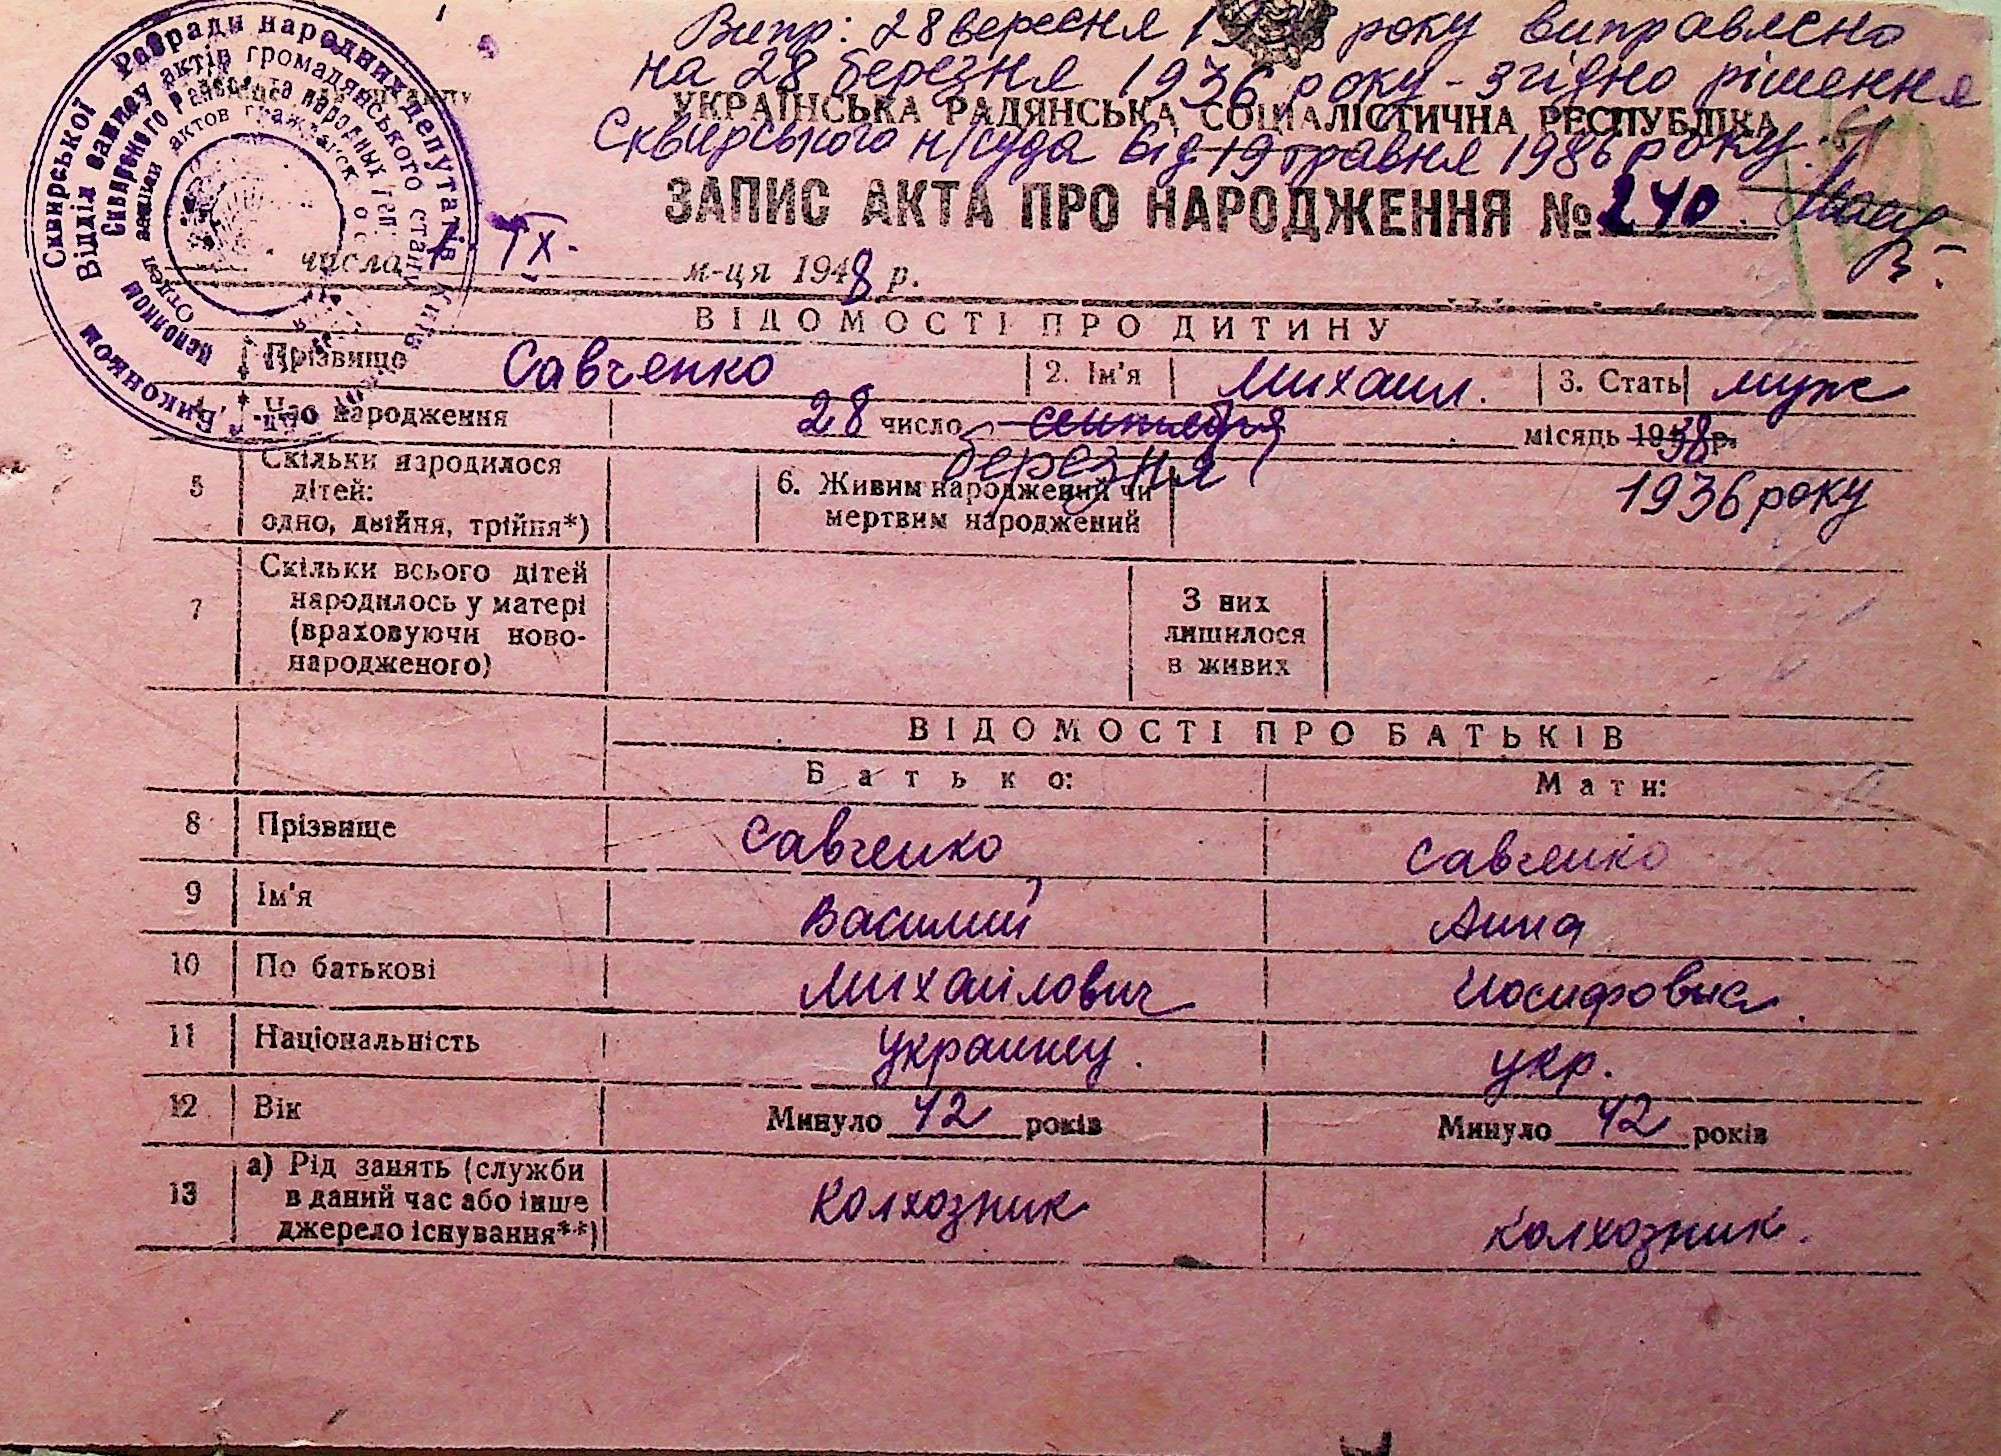 Випр: 28 вересня 1938 року виправлено
на 28 березня 1936 року - згідно рішення
УКРАЇНСЬКА РАДЯНСЬКА СОЦІАЛІСТИЧНА РЕСПУБЛІКА
Сквирського н/суда від 19 травня 1986 року.
ЗАПИС АКТА ПРО НАРОДЖЕННЯ № 240.
числа 1 IX м-ця 1948 р.
Сквирської Ради народних депутатів
Відділ запису актів громадянського стану
ВІДОМОСТІ ПРО ДИТИНУ
Прізвище Савченко 2. Ім'я Михаил. 3. Стать муж
4 Час народження 28 число сентября місяць 1938 р.
березня
1936 року
5 Скільки народилося дітей: одно, двійня, трійня*) 6. Живим народжений чи мертвим народжений
7 Скільки всього дітей народилось у матері (враховуючи ново-народженого) З них лишилося в живих
ВІДОМОСТІ ПРО БАТЬКІВ
Батько: Мати:
8 Прізвище Савченко Савченко
9 Ім'я Василий Анна
10 По батькові Михайлович Иосифовна.
11 Національність украинец. укр.
12 Вік Минуло 42 років Минуло 42 років
13 а) Рід занять (служби в даний час або інше джерело існування**) колхозник колхозник.